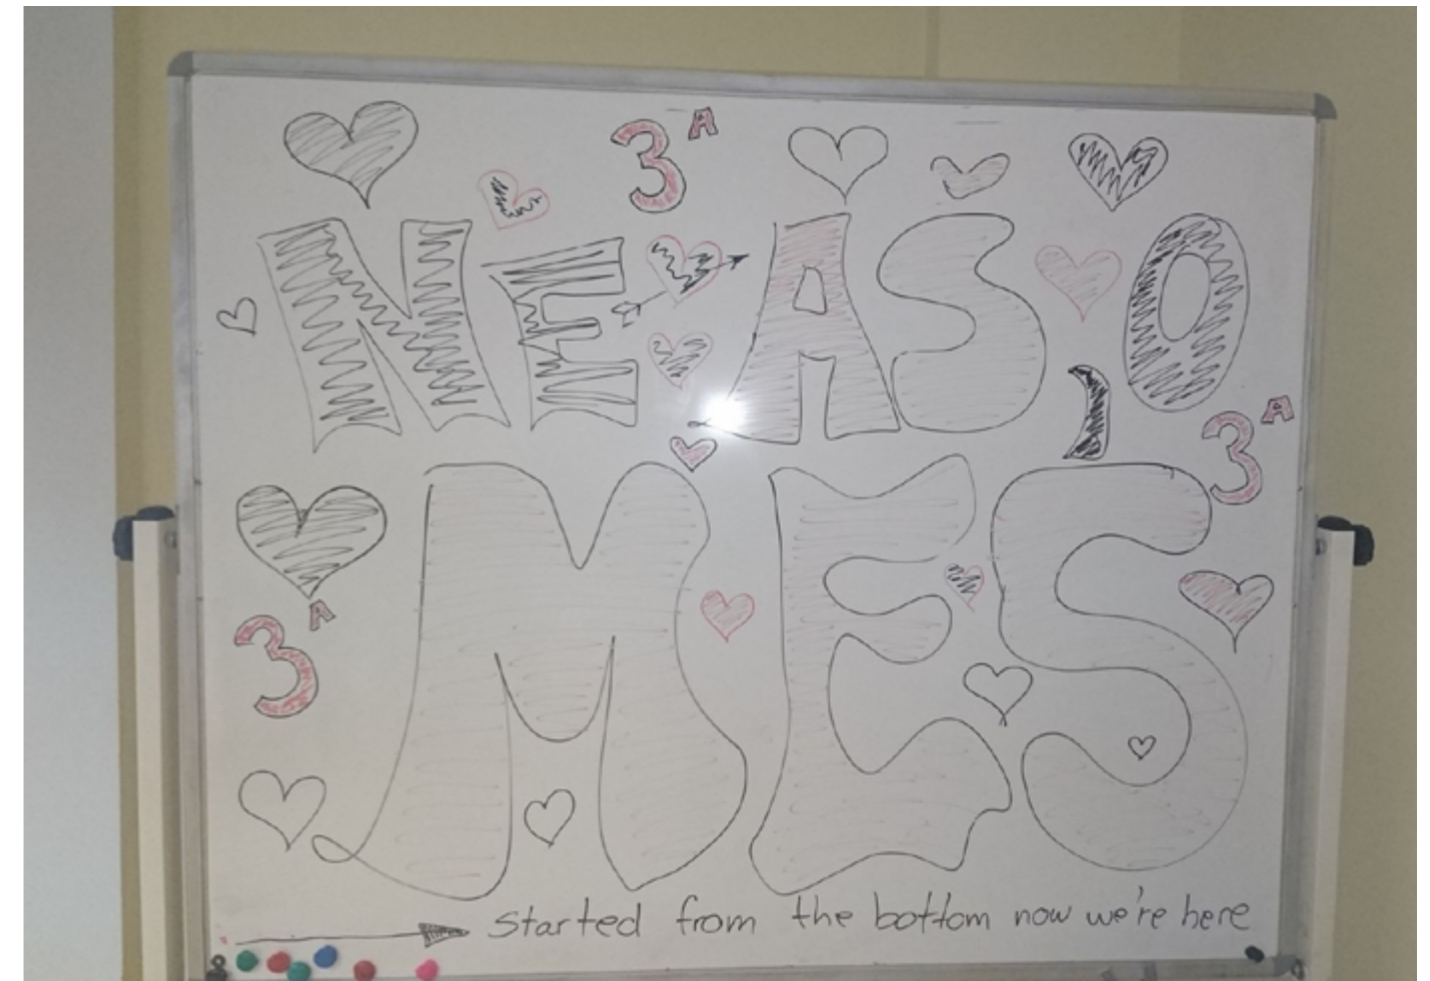 3 A
NE AS O,
3 A
MES
3 A
started from the bottom now we're here